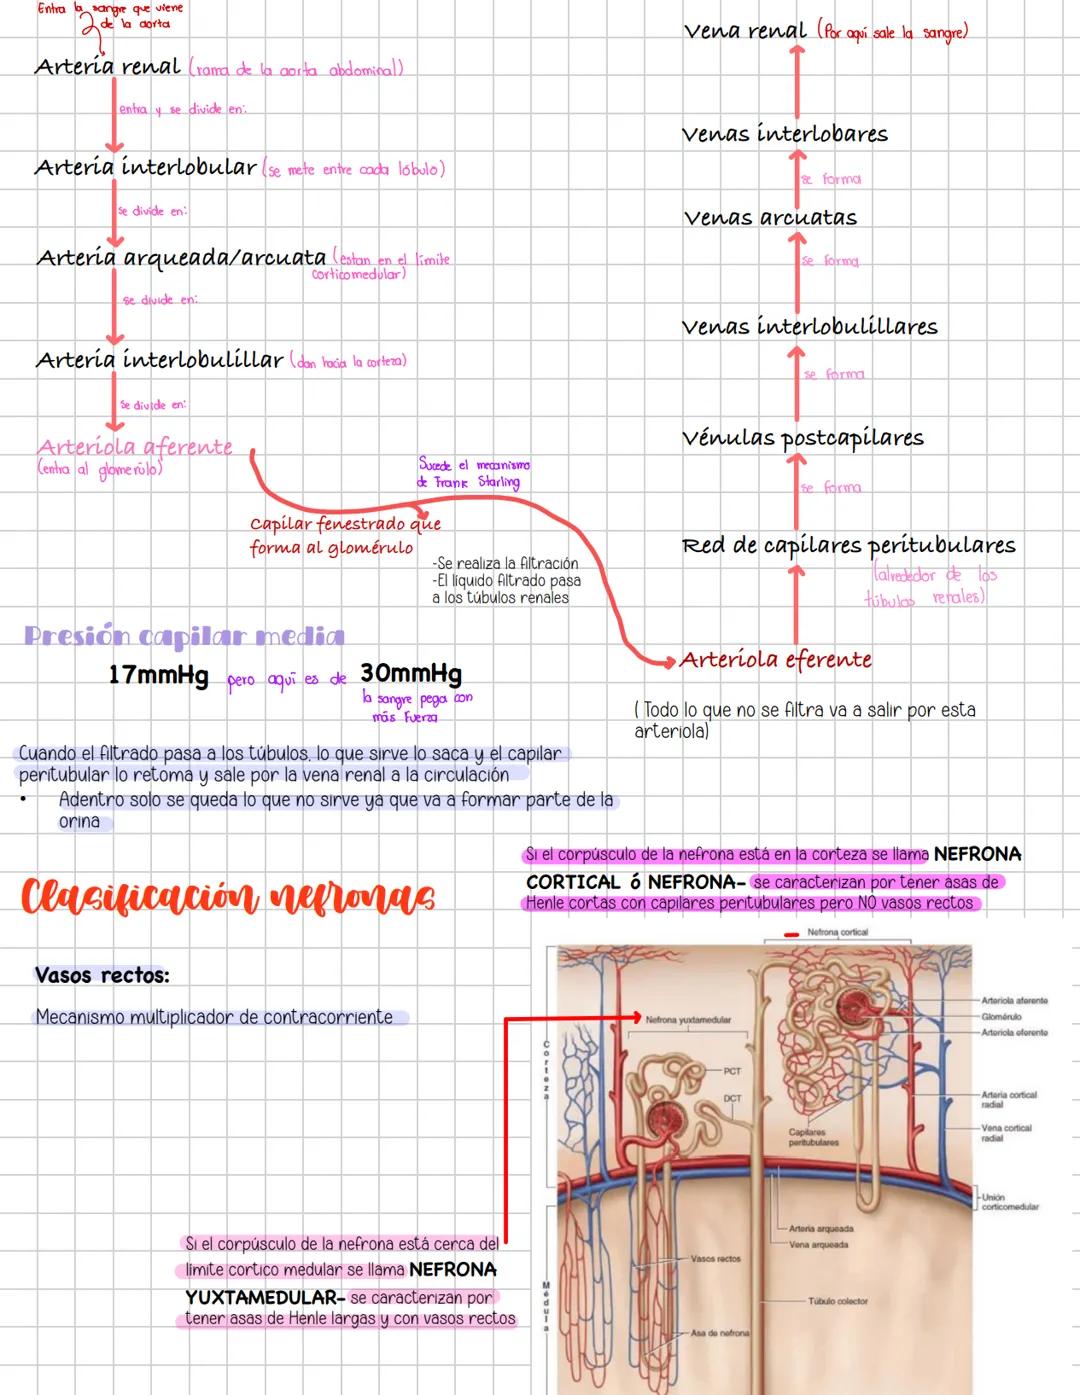 Entra la sangre que viene
de la aorta
Arteria renal (rama de la aorta abdominal)
entra y se divide en:
Arteria interlobular (se mete entre cada lóbulo)
se divide en:
Arteria arqueada/arcuata (estan en el límite
corticomedular)
se divide en:
Arteria interlobulillar (dan hacia la corteza)
se divide en:
Arteriola aferente
(entra al glomerulo)
Sucede el mecanismo
de Frank Starling
Capilar fenestrado que
forma al glomérulo
-Se realiza la filtración
-El líquido filtrado pasa
a los túbulos renales
Vena renal (Por aquí sale la sangre)
Venas interlobares
se forma
Venas arcuatas
se forma
Venas interlobulillares
se forma
Vénulas postcapilares
se forma
Red de capilares peritubulares
(alrededor de los
túbulos renales)
Arteriola eferente
( Todo lo que no se filtra va a salir por esta
arteriola)
Presión capilar media
17mmHg pero aquí es de 30mmHg
la sangre pega con
más fuerza
Cuando el filtrado pasa a los túbulos, lo que sirve lo saca y el capilar
peritubular lo retoma y sale por la vena renal a la circulación
• Adentro solo se queda lo que no sirve ya que va a formar parte de la
orina
Clasificación nefronas
Si el corpúsculo de la nefrona está en la corteza se llama NEFRONA
CORTICAL ó NEFRONA- se caracterizan por tener asas de
Henle cortas con capilares peritubulares pero NO vasos rectos
Vasos rectos:
Mecanismo multiplicador de contracorriente
Si el corpúsculo de la nefrona está cerca del
limite cortico medular se llama NEFRONA
YUXTAMEDULAR- se caracterizan por
tener asas de Henle largas y con vasos rectos
Nefrona cortical
Nefrona yuxtamedular
Corteza
PCT
DCT
Capilares
peritubulares
Arteriola aferente
Glomérulo
Arteriola eferente
Arteria cortical
radial
Vena cortical
radial
Unión
corticomedular
Arteria arqueada
Vena arqueada
Vasos rectos
Médula
Túbulo colector
Asa de nefrona